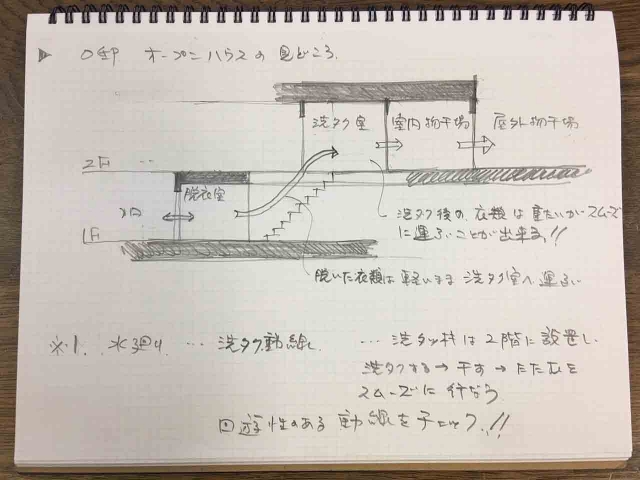 O邸 オープンハウスの見どころ.
洗タク室
室内物干場
屋外物干場
2F
脱衣室
1F
洗タク後の衣類は重たいがスムーズ
に運ぶことが出来る!!
脱いた衣類は軽いまま洗タク室へ運ぶ
※1. 水廻り … 洗タク動線. … 洗タク機は2階に設置し
洗タクする→干す→たたむを
スムーズに行なう
回遊性のある動線をチェック!!